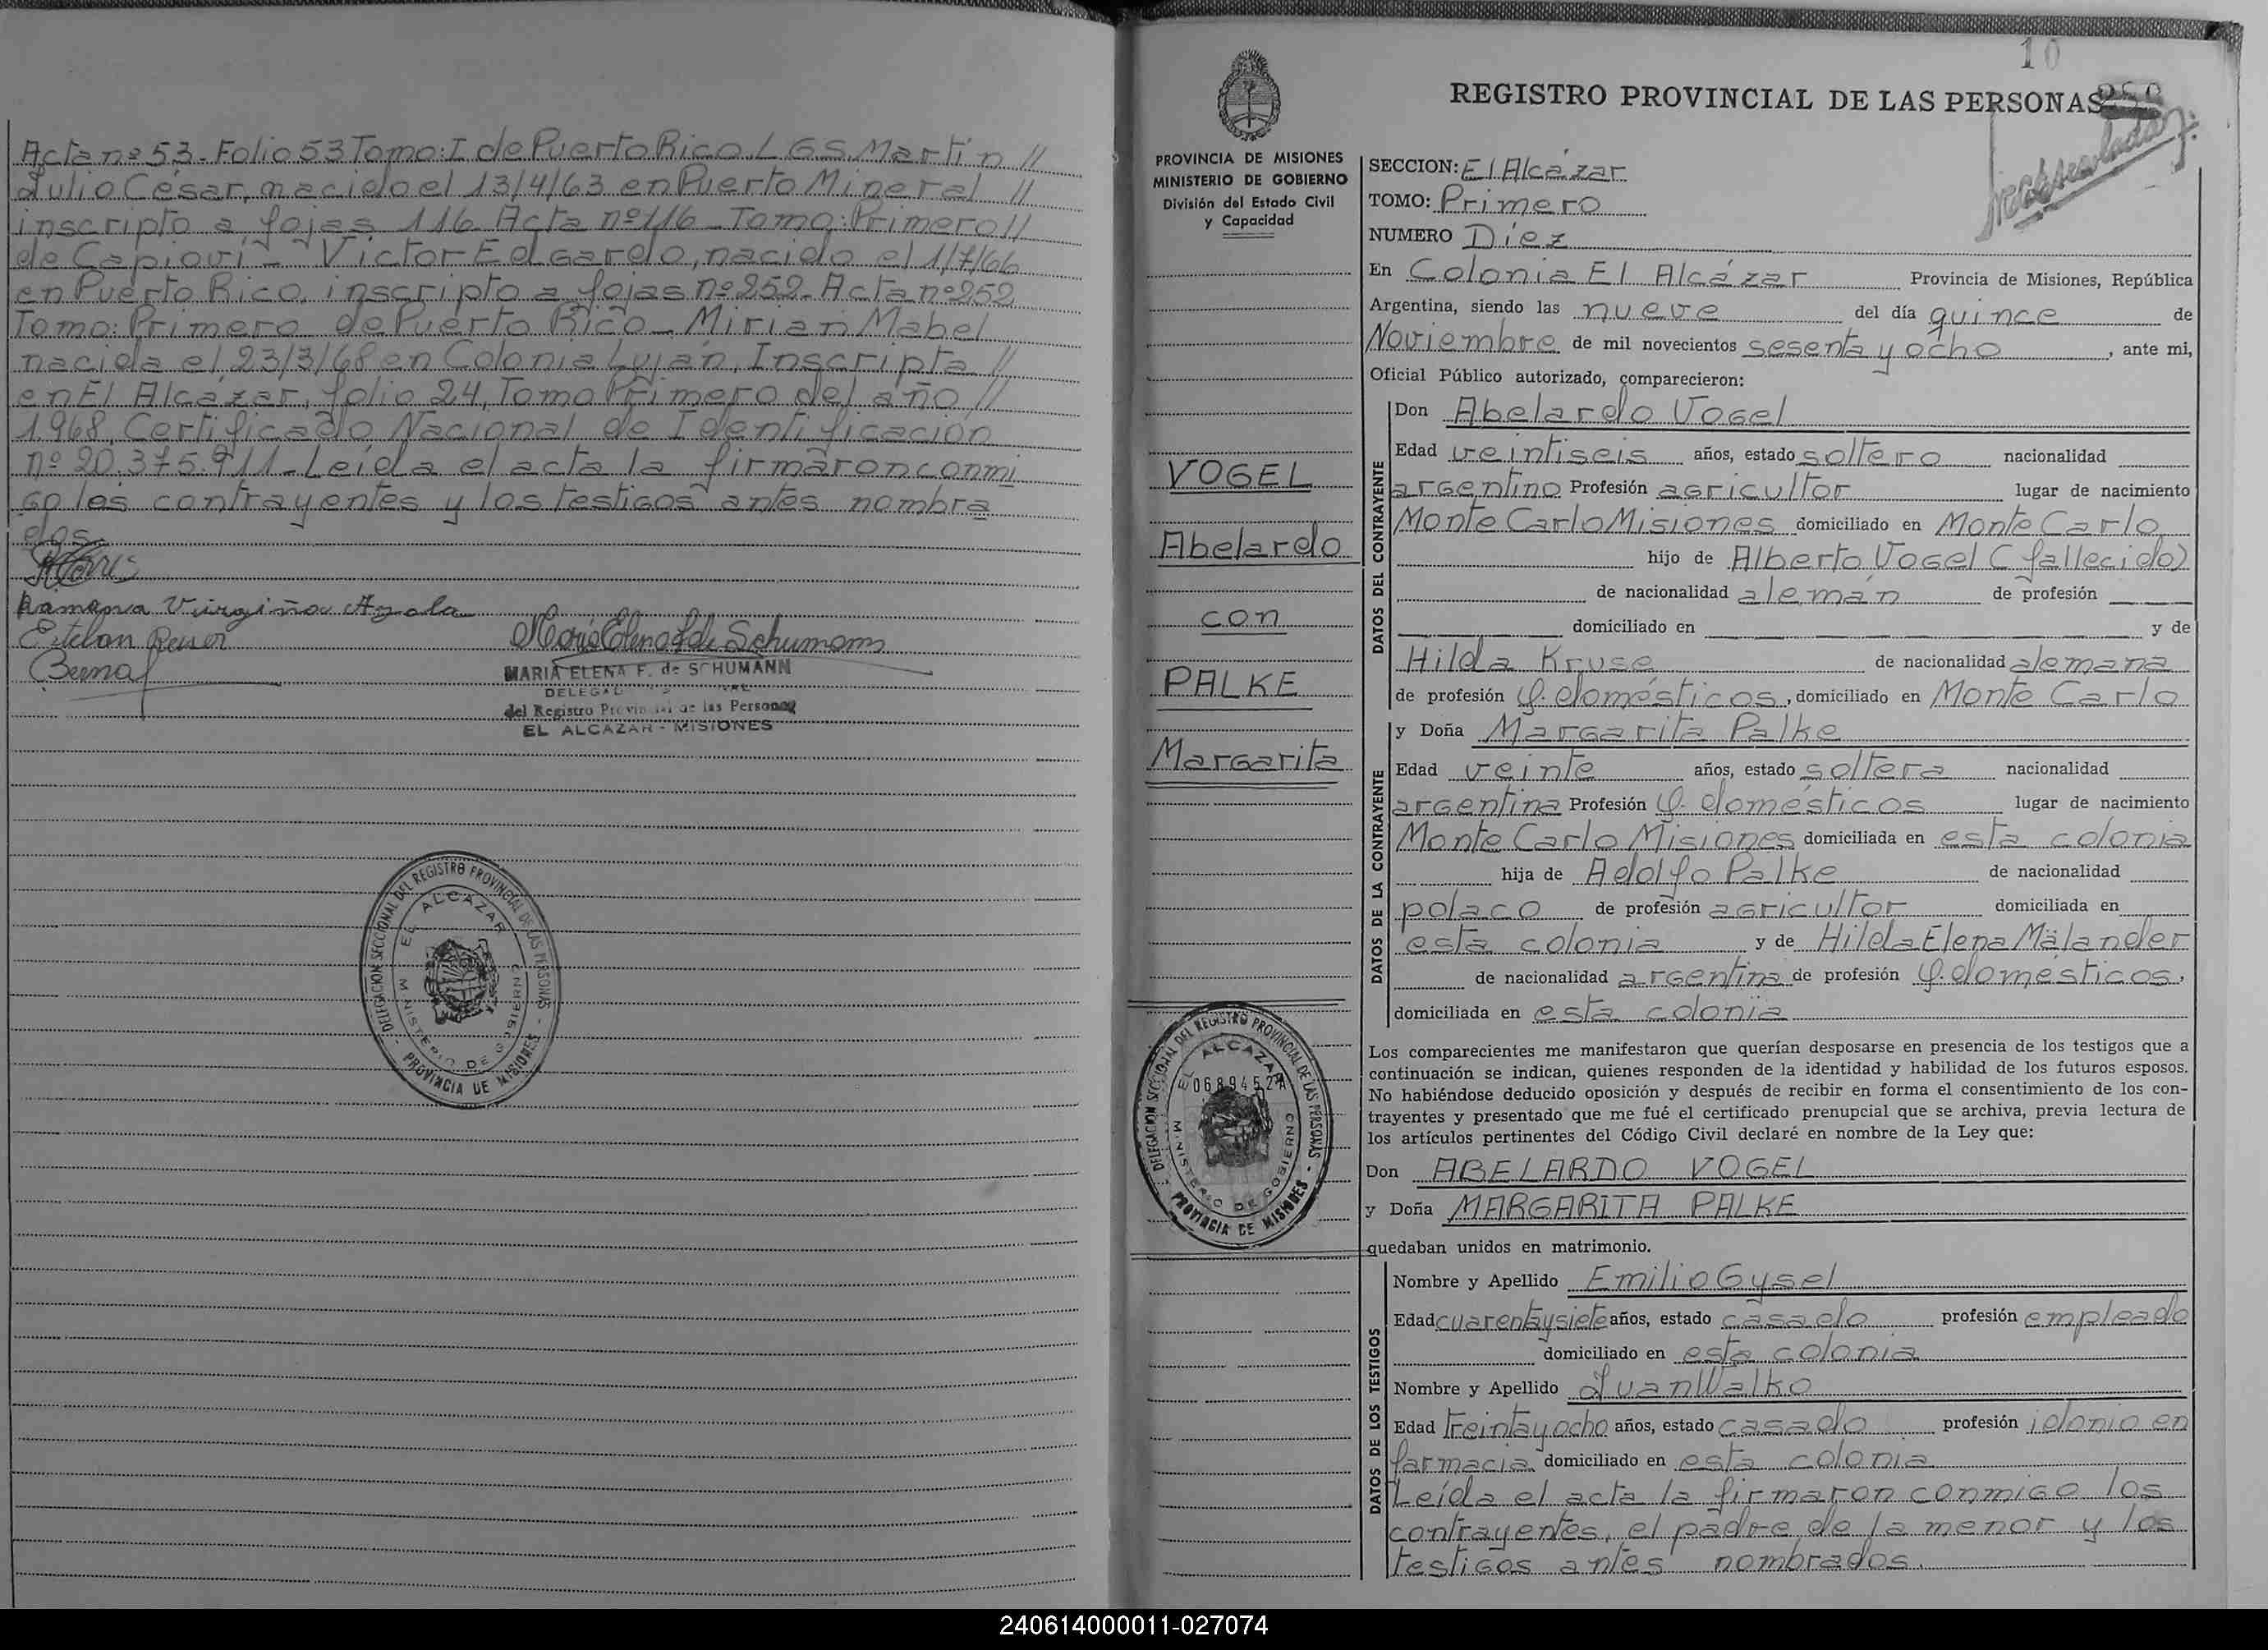 Acta nº 53. Folio 53 Tomo: I de Puerto Rico. L.G.S. Martín //
Julio César, nacido el 13/4/63 en Puerto Mineral //
inscripto a fojas 116 Acta nº 116 - Tomo: Primero //
de Capioví - Victor Edgardo, nacido el 1/7/66
en Puerto Rico, inscripto a fojas nº 252. Acta nº 252
Tomo: Primero de Puerto Rico - Mirian Mabel
nacida el 23/3/68 en Colonia Luján, Inscripta //
en El Alcázar, folio 24, Tomo Primero del año //
1.968, Certificado Nacional de Identificación
nº 20.375.911 - Leída el acta la firmaron conmi
go los contrayentes y los testigos antes nombra
dos
Ramona Virginia Ayala
Esteban Reiser
Bernal
Maria Elena F de Schumann
MARIA ELENA F. de SCHUMANN
del Registro Provincial de las Personas
EL ALCAZAR - MISIONES
DELEGACION SECCIONAL DEL REGISTRO PROVINCIAL DE LAS PERSONAS - PROVINCIA DE MISIONES -
EL ALCAZAR
MINISTERIO DE GOBIERNO
10
REGISTRO PROVINCIAL DE LAS PERSONAS
PROVINCIA DE MISIONES
MINISTERIO DE GOBIERNO
División del Estado Civil
y Capacidad
VOGEL
Abelardo
con
PALKE
Margarita
DELEGACION SECCIONAL DEL REGISTRO PROVINCIAL DE LAS PERSONAS - PROVINCIA DE MISIONES -
EL ALCAZAR
0689452
MINISTERIO DE GOBIERNO
SECCION: El Alcázar
TOMO: Primero
NUMERO Diez
En Colonia El Alcázar Provincia de Misiones, República
Argentina, siendo las nueve del día quince de
Noviembre de mil novecientos sesenta y ocho, ante mi,
Oficial Público autorizado, comparecieron:
DATOS DEL CONTRAYENTE
Don Abelardo Vogel
Edad veintiseis años, estado soltero nacionalidad
argentino Profesión agricultor lugar de nacimiento
Monte Carlo Misiones domiciliado en Monte Carlo
hijo de Alberto Vogel (fallecido)
de nacionalidad alemán de profesión
domiciliado en y de
Hilda Kruse de nacionalidad alemana
de profesión q. domésticos, domiciliado en Monte Carlo
DATOS DE LA CONTRAYENTE
y Doña Margarita Palke
Edad veinte años, estado soltera nacionalidad
argentina Profesión q. domésticos lugar de nacimiento
Monte Carlo Misiones domiciliada en esta colonia
hija de Adolfo Palke de nacionalidad
polaco de profesión agricultor domiciliada en
esta colonia y de Hilda Elena Mälander
de nacionalidad argentina de profesión q. domésticos,
domiciliada en esta colonia
Los comparecientes me manifestaron que querían desposarse en presencia de los testigos que a
continuación se indican, quienes responden de la identidad y habilidad de los futuros esposos.
No habiéndose deducido oposición y después de recibir en forma el consentimiento de los con-
trayentes y presentado que me fué el certificado prenupcial que se archiva, previa lectura de
los artículos pertinentes del Código Civil declaré en nombre de la Ley que:
Don ABELARDO VOGEL
y Doña MARGARITA PALKE
quedaban unidos en matrimonio.
DATOS DE LOS TESTIGOS
Nombre y Apellido Emilio Gysel
Edad cuarentaysiete años, estado casado profesión empleado
domiciliado en esta colonia
Nombre y Apellido Juan Walko
Edad treintayocho años, estado casado profesión idonio en
farmacia domiciliado en esta colonia
Leída el acta la firmaron conmigo los
contrayentes, el padre de la menor y los
testigos antes nombrados.
240614000011-027074